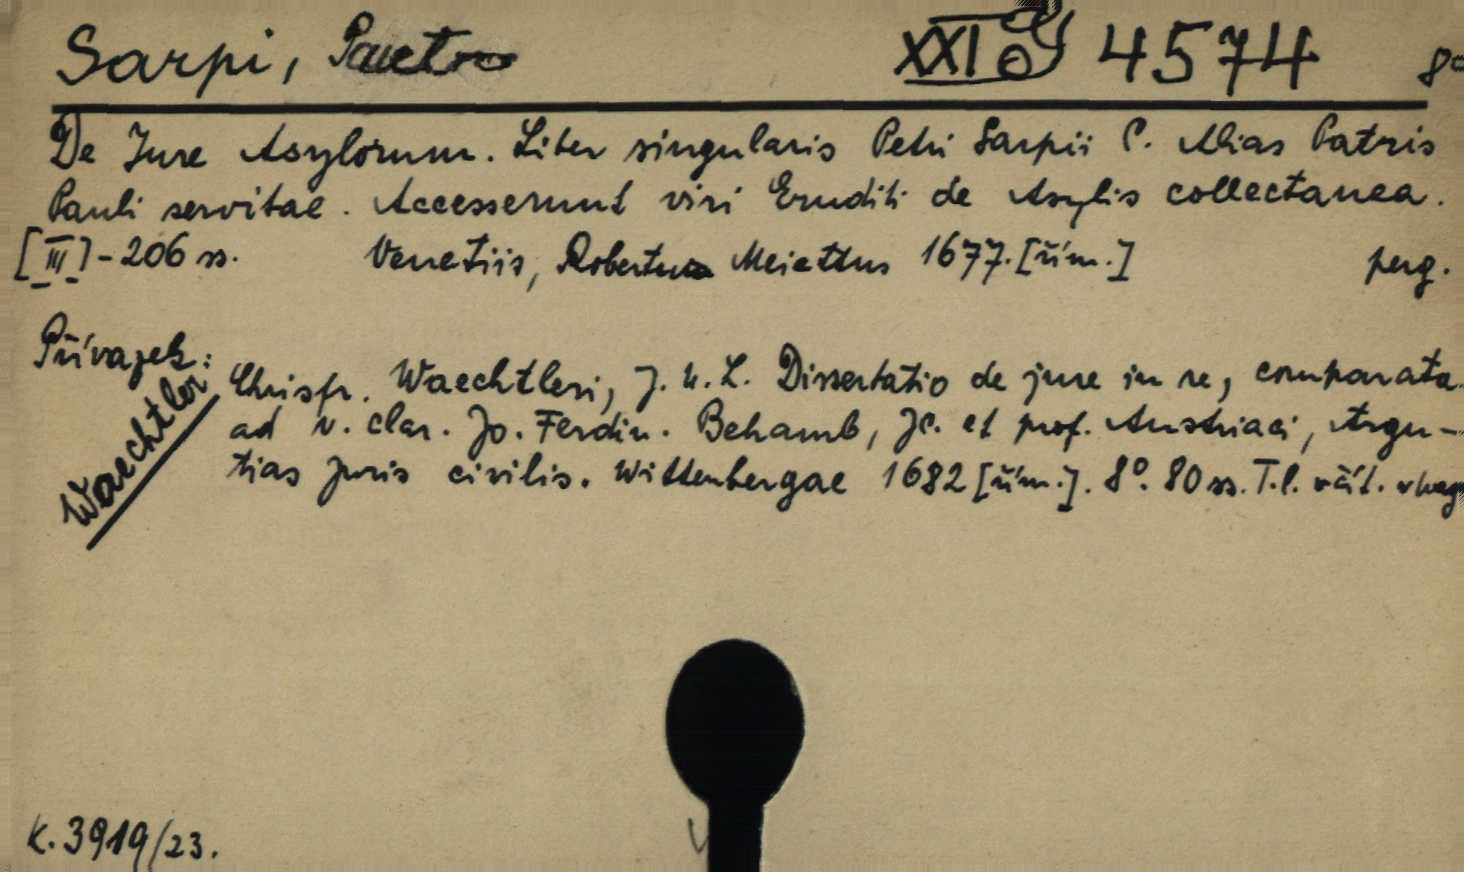 Sarpi, 4574 8°
De Jure Asylorum. Liber singularis Petri Sarpii C. Alias Patris
Pauli servitae. Accesserunt viri Eruditi de Asylis collectanea.
[III]-206 ss. Venetiis, Robertus Meiettus 1677.[řím.] perg.
Přívazek:
Waechtler
Christr. Waechtleri, J. U. L. Dissertatio de jure in re, comparata
ad v. clar. Jo. Ferdin. Behamb, JC. et prof. Austriaci, Argu-
tias Juris civilis. Wittenbergae 1682 [řím.]. 8°. 80 ss. T.l.
K. 3919/23.